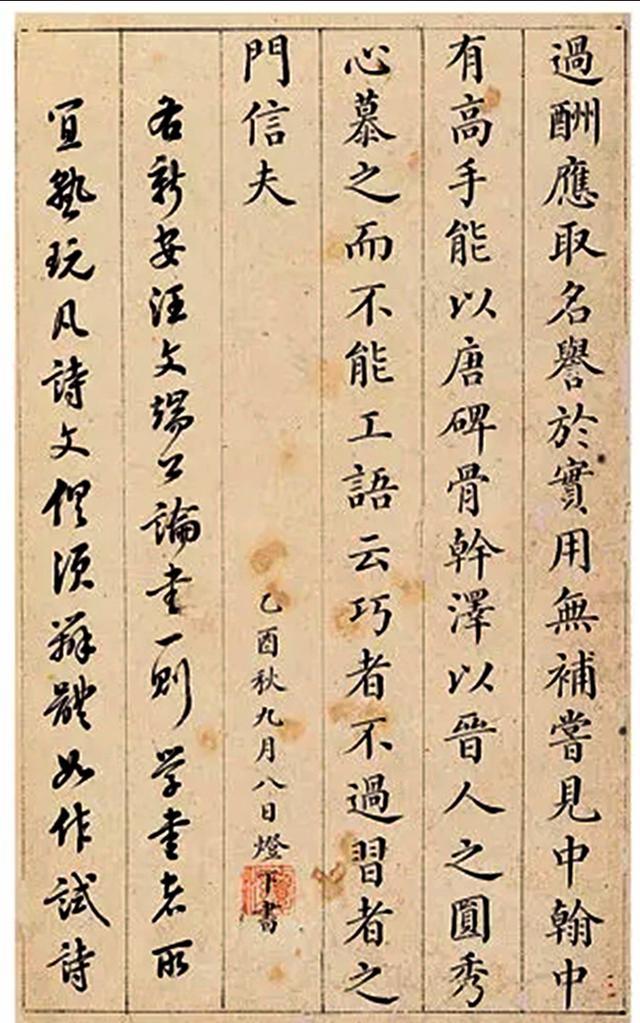 過酬應取名譽於實用無補嘗見中翰中
有高手能以唐碑骨幹澤以晉人之圓秀
心慕之而不能工語云巧者不過習者之
門信夫
乙酉秋九月八日燈下書
右新安汪文端公論書一則學書者所
宜熟玩凡詩文俱須辨體如作試詩